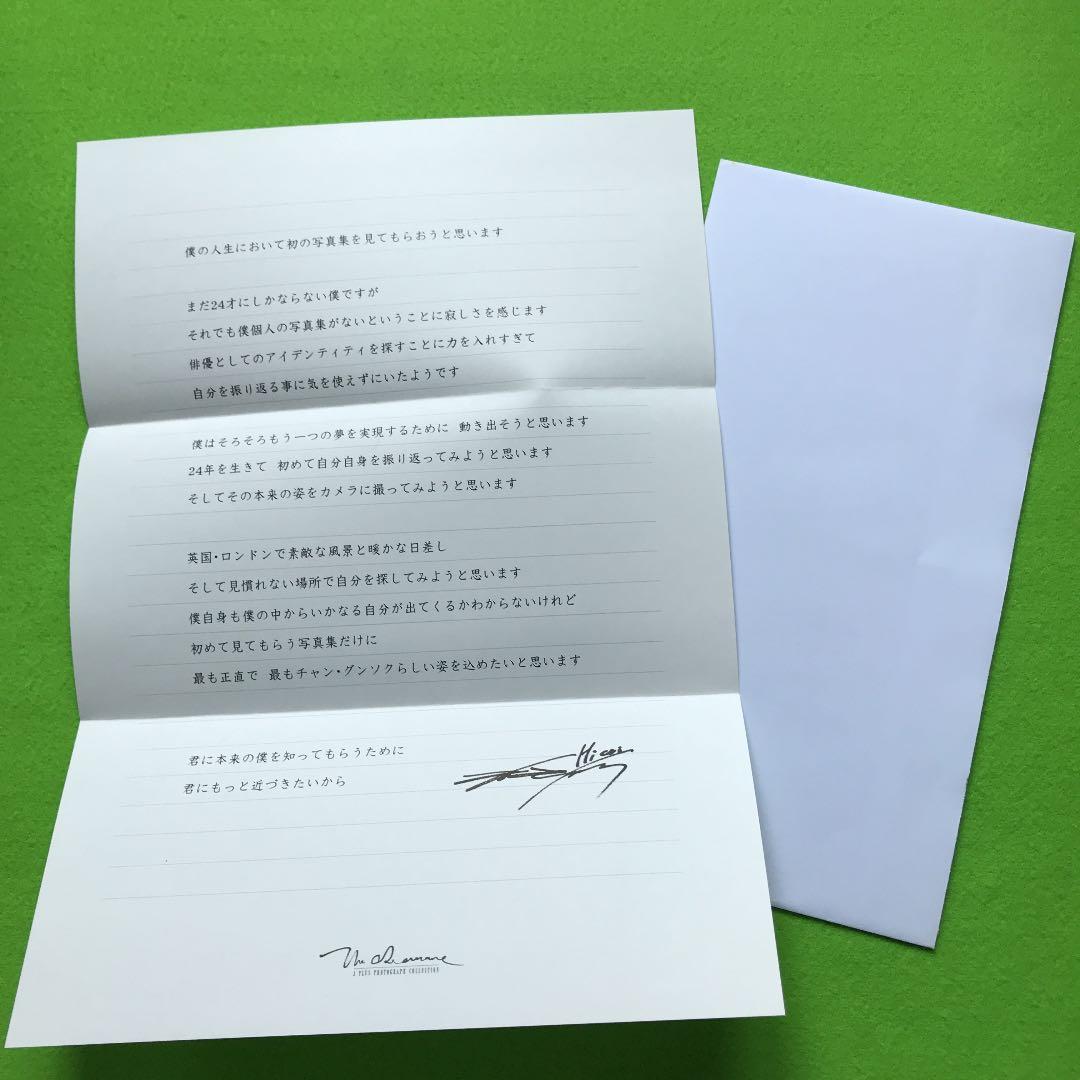 僕の人生において初の写真集を見てもらおうと思います
まだ24才にしかならない僕ですが
それでも僕個人の写真集がないということに寂しさを感じます
俳優としてのアイデンティティを探すことに力を入れすぎて
自分を振り返る事に気を使えずにいたようです
僕はそろそろもう一つの夢を実現するために 動き出そうと思います
24年を生きて 初めて自分自身を振り返ってみようと思います
そしてその本来の姿をカメラに撮ってみようと思います
英国・ロンドンで素敵な風景と暖かな日差し
そして見慣れない場所で自分を探してみようと思います
僕自身も僕の中からいかなる自分が出てくるかわからないけれど
初めて見てもらう写真集だけに
最も正直で 最もチャン・グンソクらしい姿を込めたいと思います
君に本来の僕を知ってもらうために
君にもっと近づきたいから
J PLUS PHOTOGRAPH COLLECTION